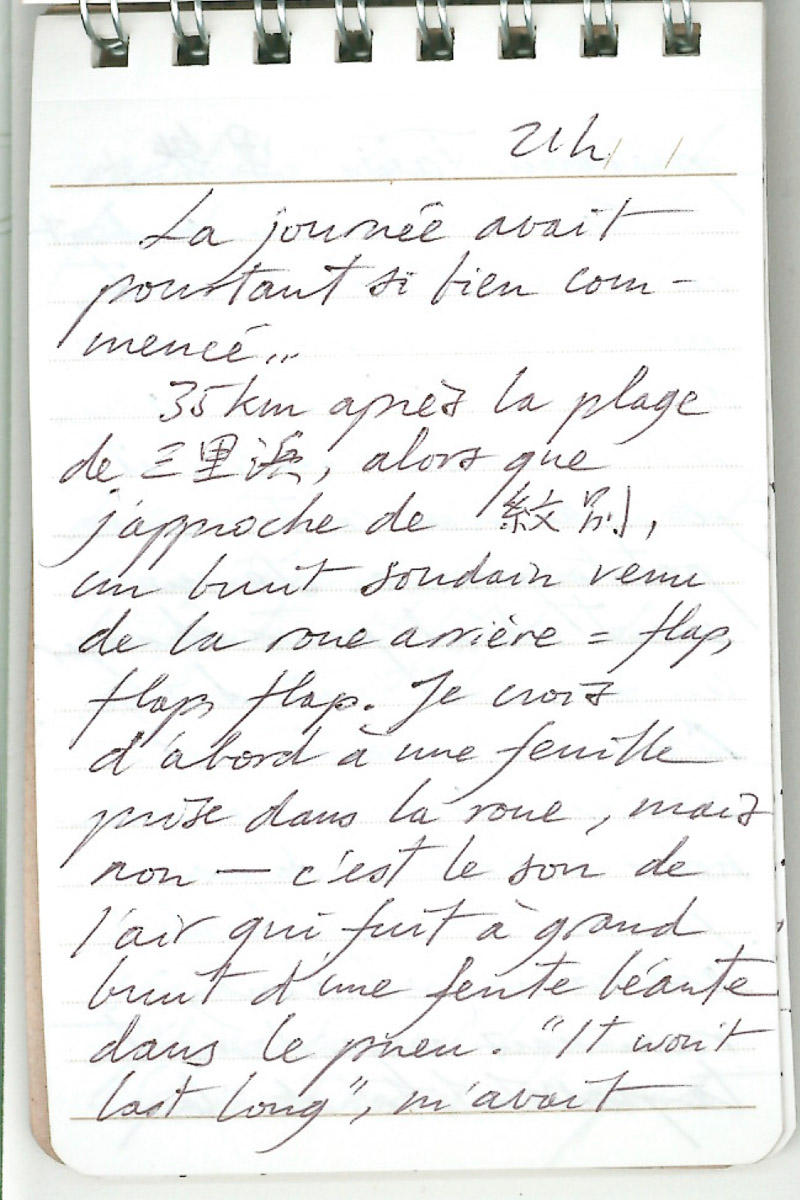 21h
La journée avait
pourtant si bien com-
mencé...
35km après la plage
de 三里浜, alors que
j'approche de 紋別,
un bruit soudain venu
de la roue arrière = flap,
flap, flap. Je crois
d'abord à une feuille
prise dans la roue, mais
non — c'est le son de
l'air qui fuit à grand
bruit d'une fente béante
dans le pneu. "It won't
last long", m'avait